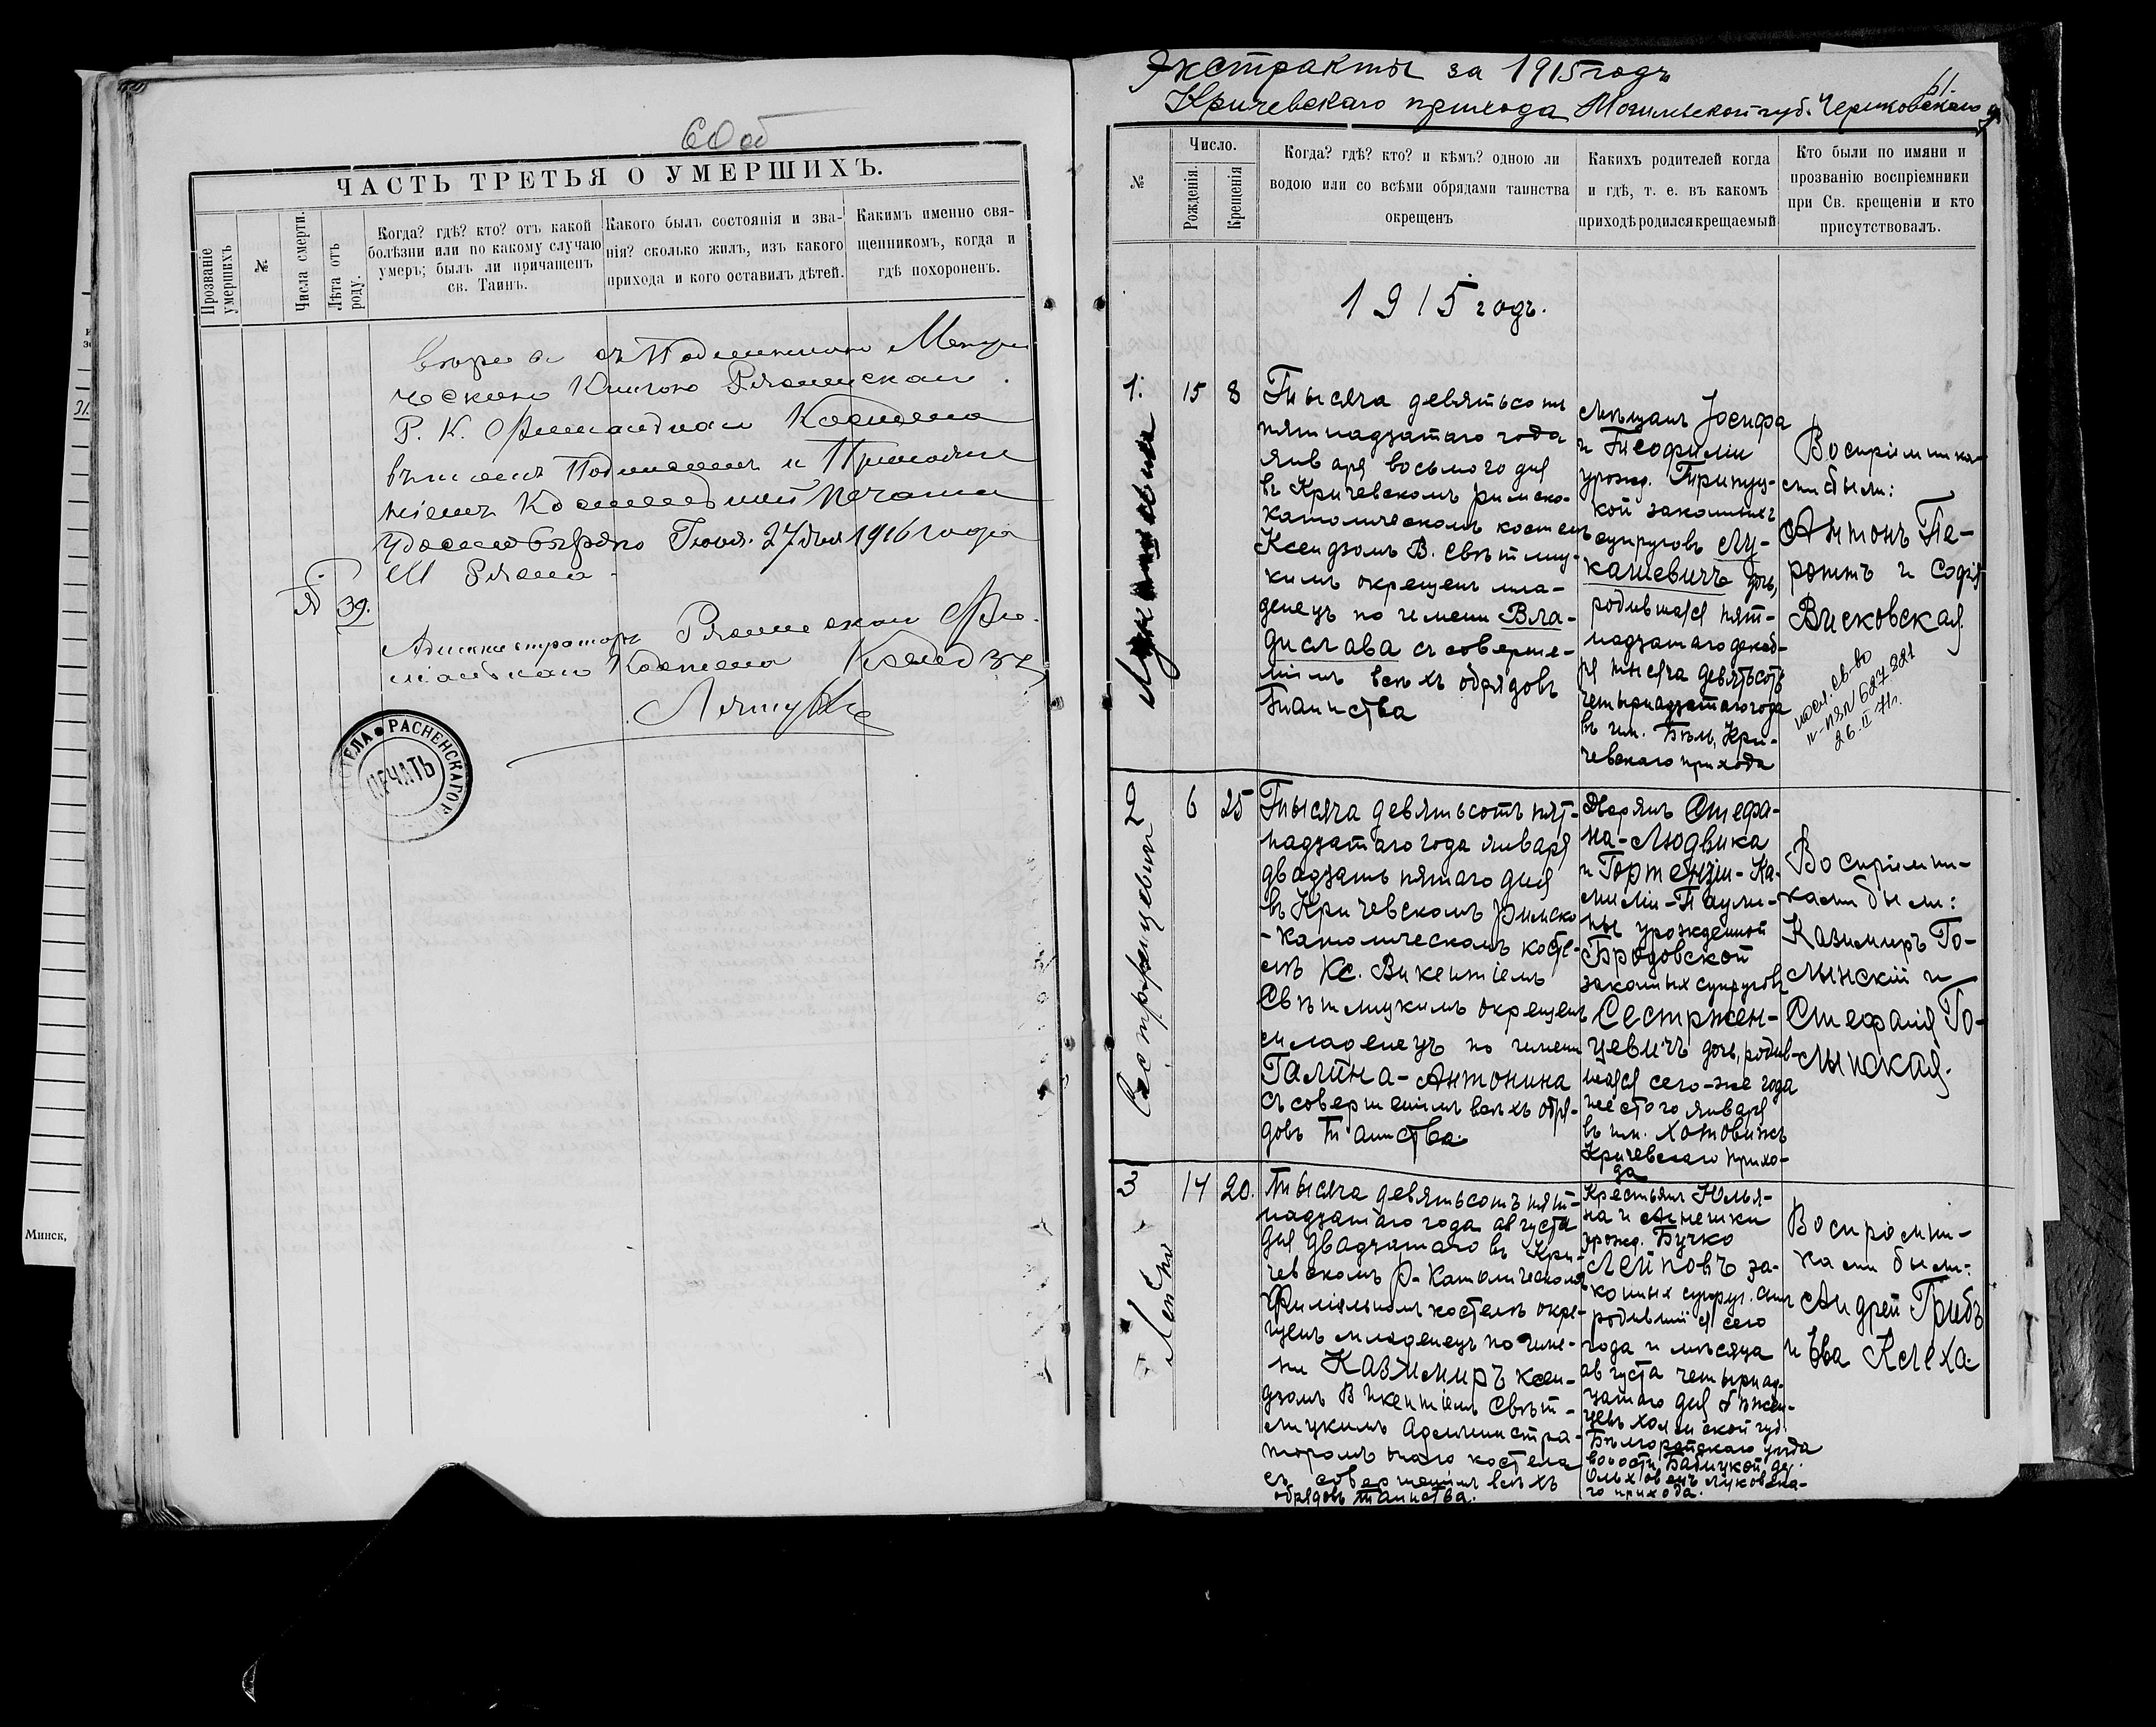 60 об
ЧАСТЬ ТРЕТЬЯ О УМЕРШИХЪ.
Прозваніе умершихъ
№
Числа смерти.
Лѣта отъ роду.
Когда? гдѣ? кто? отъ какой
болѣзни или по какому случаю
умеръ; былъ ли причащенъ
св. Таинъ.
Какого былъ состоянія и зва-
нія? сколько жилъ, изъ какого
прихода и кого оставилъ дѣтей.
Какимъ именно свя-
щенникомъ, когда и
гдѣ похороненъ.
съ Подлинною Метри
ческою Книгою Рясненскаго
Р. К. Филіальнаго Костела
Подписомъ и Приложе
ніемъ Костельной печати
удостовѣряю Іюля 27 дня 1916 года
М Рясна
№ 39.
Администраторъ Рясненскаго Фи
ліальнаго Костела Ксендзъ
КОСТЕЛА • РАСНЕНСКАГО
ПЕЧАТЬ
Минск,
Экстракты за 1915 годъ
61.
Кричевскаго прихода Могилевской губ. Чериковскаго у.
№
Число.
Рожденія.
Крещенія
Когда? гдѣ? кто? и кѣмъ? одною ли
водою или со всѣми обрядами таинства
окрещенъ
Какихъ родителей когда
и гдѣ, т. е. въ какомъ
приходѣ родился крещаемый
Кто были по имяни и
прозванію воспріемники
при Св. крещеніи и кто
присутствовалъ.
1915 годъ.
1. 15 8
Тысяча девятьсотъ
пятнадцатаго года
января восьмого дня
въ Кричевскомъ римско-
католическомъ костелѣ
Ксендзомъ В. Свѣтлиц-
кимъ окрещенъ мла-
денецъ по имени Вла-
дислава съ соверше-
ніемъ всѣхъ обрядовъ
Таинства
Мѣщанъ Іосифа
и Теофиліи
урожд. Трипуц-
кой законныхъ
супруговъ Лу-
кашевичъ дочь,
родившаяся пят-
надцатаго декаб-
ря тысяча девятьсотъ
четырнадцатаго года
въ им. Бѣл, Кри-
чевскаго прихода
Воспріемника-
ми были:
Антонъ Пе-
ротъ и Софія
Висковская.
посл. св-во
IV-ПЯ № 627221
26. II 71 г.
2
Сестржен­цевичъ
6 25
Тысяча девятьсотъ пят-
надцатаго года января
двадцать пятаго дня
въ Кричевскомъ римско
-католическомъ косте-
лѣ Кс. Викентіемъ
Свѣтлицкимъ окрещенъ
младенецъ по имени
Галина-Антонина
съ совершеніемъ всѣхъ обря-
довъ Таинства.
Дворянъ Стефа-
на-Людвика
и Гортензіи-Ка-
миліи-Паули-
ны урожденной
Бродовской
законныхъ супруговъ
Сестржен-
цевичъ дочь, родив-
шаяся сего-же года
шестого января
въ им. Хотовижъ
Кричевскаго прихо-
да
Воспріемни-
ками были:
Казимиръ Го-
лынскій и
Стефанія Го-
лынская.
3
14 20.
Тысяча девятьсотъ пят-
надцатаго года августа
дня двадцатаго въ Кри-
чевскомъ Р-Католическомъ
Филіальномъ костелѣ окре-
щенъ младенецъ по име-
ни Казимиръ ксен-
дзомъ Викентіемъ Свѣт-
лицкимъ Администра-
торомъ онаго костела
съ совершеніемъ всѣхъ
обрядовъ таинства.
Крестьянъ Юлья-
на и Агнешки
урожд. Бучко
Лейповъ за-
конных супруг. сынъ
родившійся сего
года и мѣсяца
августа четырнад-
цатаго дня бѣжен-
цевъ холмской губ.
Бѣлгорайскаго уѣзда
волости Бабицкой дер.
Ольховецъ Луковска-
го прихода.
Воспріемни-
ками были:
Андрей Грибъ
и Ева Клеха.